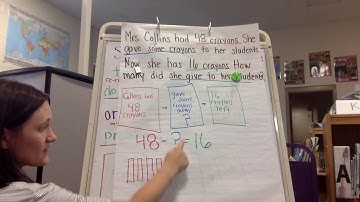 Mrs Collins had 48 crayons. She
gave some crayons to her students.
Now she has 16 crayons. How
many did she give to her students?
Collins had
48
crayons
gave
some
crayons
away
?
16
crayons
left
48 - ? = 16